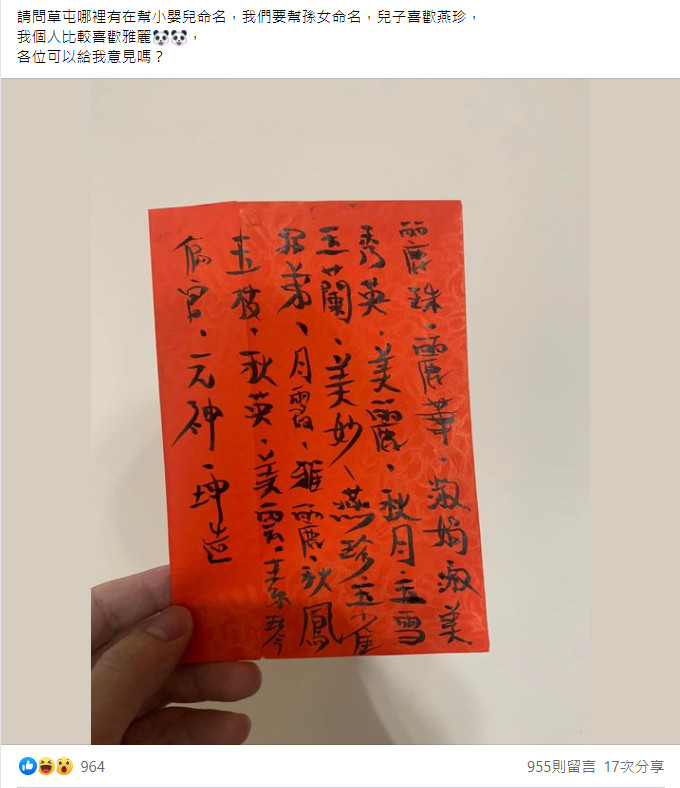 請問草屯哪裡有在幫小嬰兒命名，我們要幫孫女命名，兒子喜歡燕珍，
我個人比較喜歡雅麗🐼🐼，
各位可以給我意見嗎？
麗珠、麗華、淑娟淑美
秀英、美麗、秋月、玉雪
玉蘭、美妙、燕珍玉雀
招弟、月霞、雅麗、秋鳳
玉枝、秋英、美雲、素琴
偏官、元神、坤造
964
955則留言 17次分享